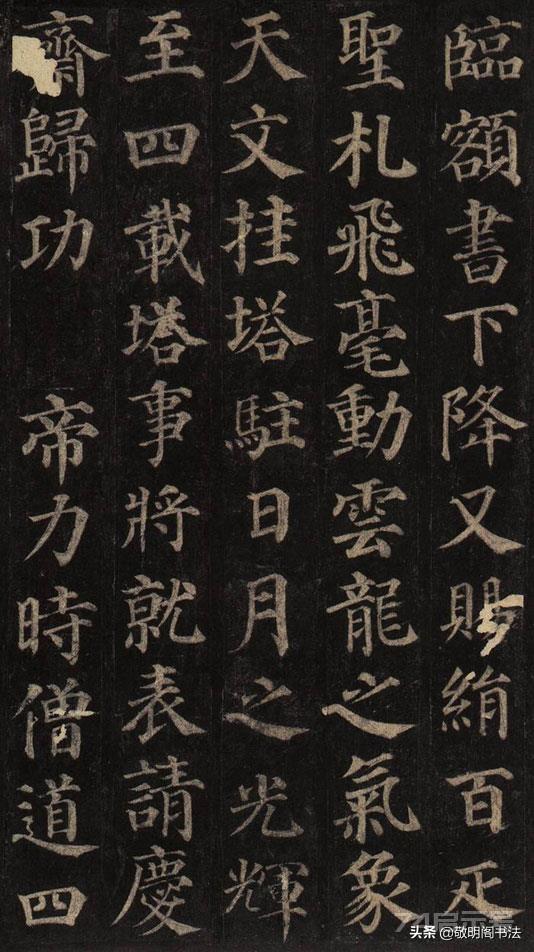 臨額書下降又賜絹百疋
聖札飛毫動雲龍之氣象
天文挂塔駐日月之光輝
至四載塔事將就表請慶
齋歸功 帝力時僧道四
头条 @敬明阁书法